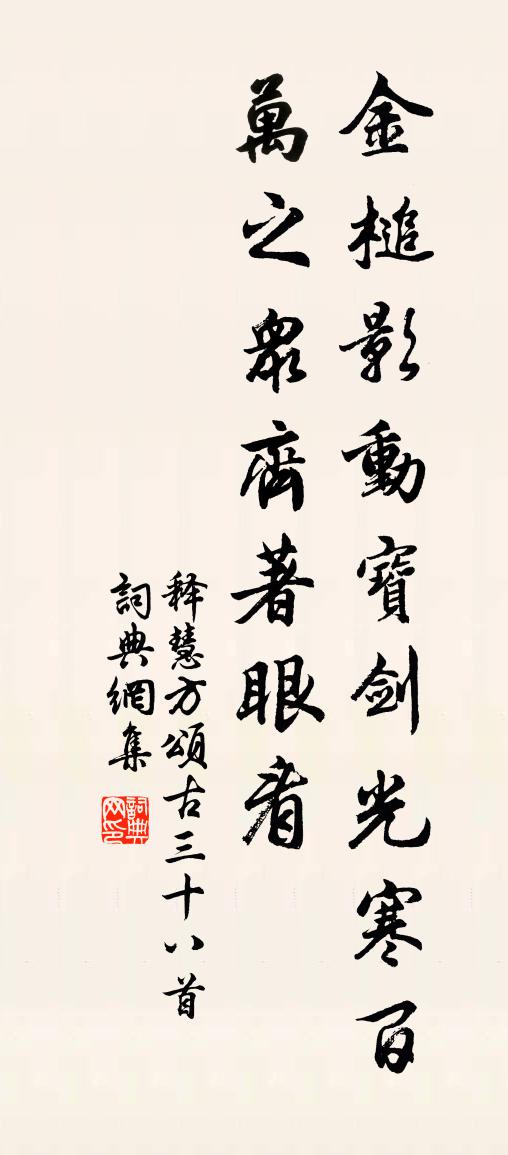 金槌影動寶劍光寒百
萬之眾齊著眼看
释慧方頌古三十八首
詞典網集
詞典
网印